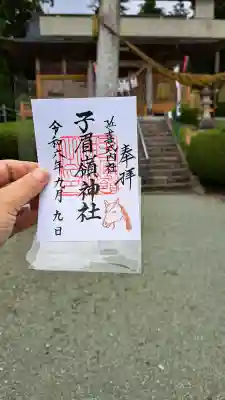 奉拝
式内社
子眉嶺神社
令和六年九月九日